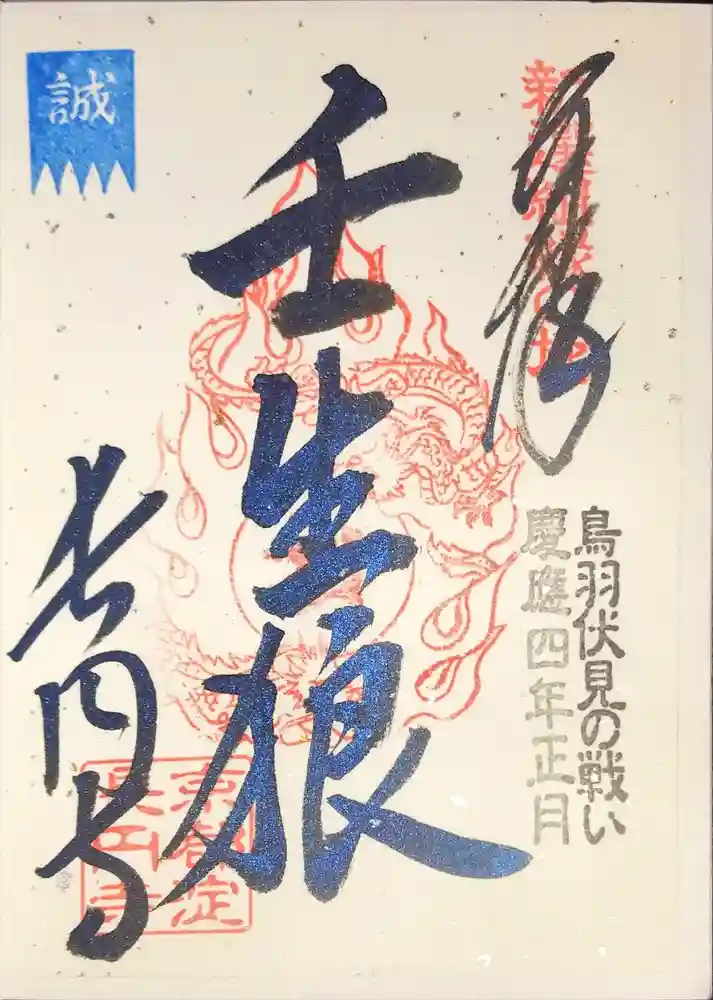 奉拝
新選組ゆかりの地
鳥羽伏見の戦い
慶應四年正月
壬生狼
誠
長円寺
京都淀
長円寺